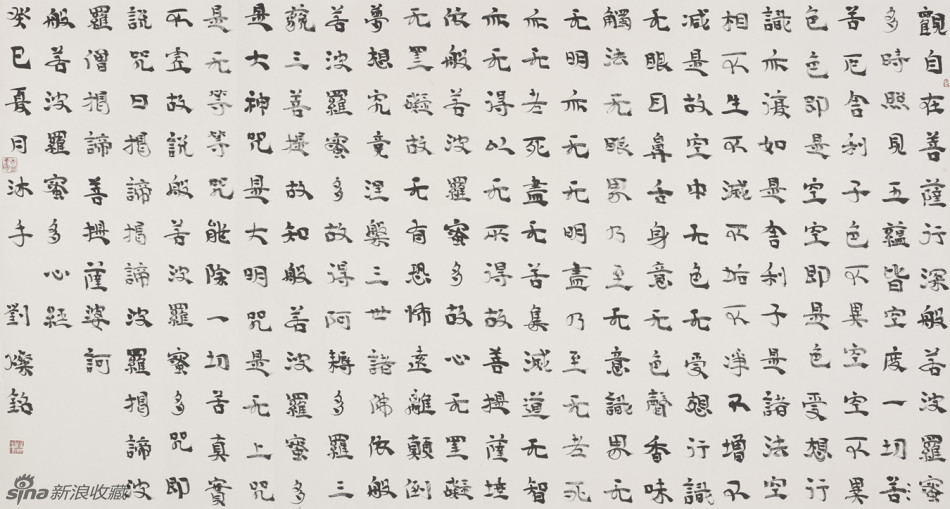 觀自在菩薩行深般若波羅蜜
多時照見五蘊皆空度一切
苦厄舍利子色不異空空不異
色色即是空空即是色受想行
識亦復如是舍利子是諸法空
相不生不滅不垢不淨不增不
減是故空中无色无受想行識
无眼耳鼻舌身意无色聲香味
觸法无眼界乃至无意識界无
无明亦无无明盡乃至无老死
亦无老死盡无苦集滅道无智
亦无得以无所得故菩提薩埵
依般若波羅蜜多故心无罣礙
无罣礙故无有恐怖遠離顛倒
夢想究竟涅槃三世諸佛依般
若波羅蜜多故得阿耨多羅三
藐三菩提故知般若波羅蜜多
是大神咒是大明咒是无上咒
是无等等咒能除一切苦真實
不虛故說般若波羅蜜多咒即
說咒曰揭諦揭諦波羅揭諦波
羅僧揭諦菩提薩婆訶
般若波羅蜜多心經
癸巳夏月沐手劉燦銘
sina新浪收藏